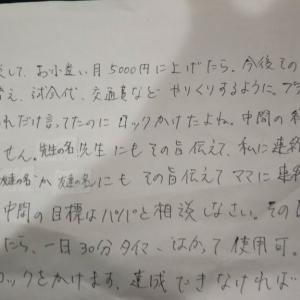 して、お小遣い月5000円に上げたら、今後その
え、試合代、交通費など やりくりするように。
れだけ言ってたのに ロックかけたよね。中間の
せん。先生の名 先生 にもその旨伝えて、私に連
友達の名 か 友達の名 にも その旨伝えて ママに 連
中間の目標は パパと相談しなさい。その
たら、一日30分 タイマーはかって 使用可。
ロックをかけます。達成できなければ